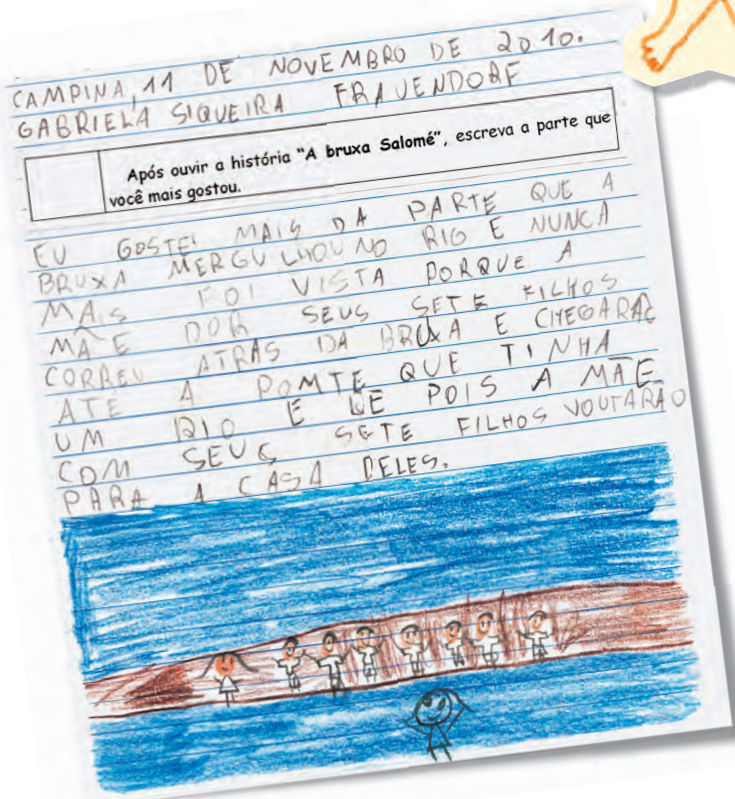 CAMPINA, 11 DE NOVEMBRO DE 2010.
GABRIELA SIQUEIRA FRAUENDORF
Após ouvir a história "A bruxa Salomé", escreva a parte que
você mais gostou.
EU GOSTEI MAIS DA PARTE QUE A
BRUXA MERGULHOU NO RIO E NUNCA
MAIS FOI VISTA PORQUE A
MÃE DOR SEUS SETE FILHOS
CORREU ATRAS DA BRUXA E CHEGARAO
ATE A POMTE QUE TINHA
UM RIO E DE POIS A MÃE
COM SEUS SETE FILHOS VOUTARAO
PARA A CASA DELES.